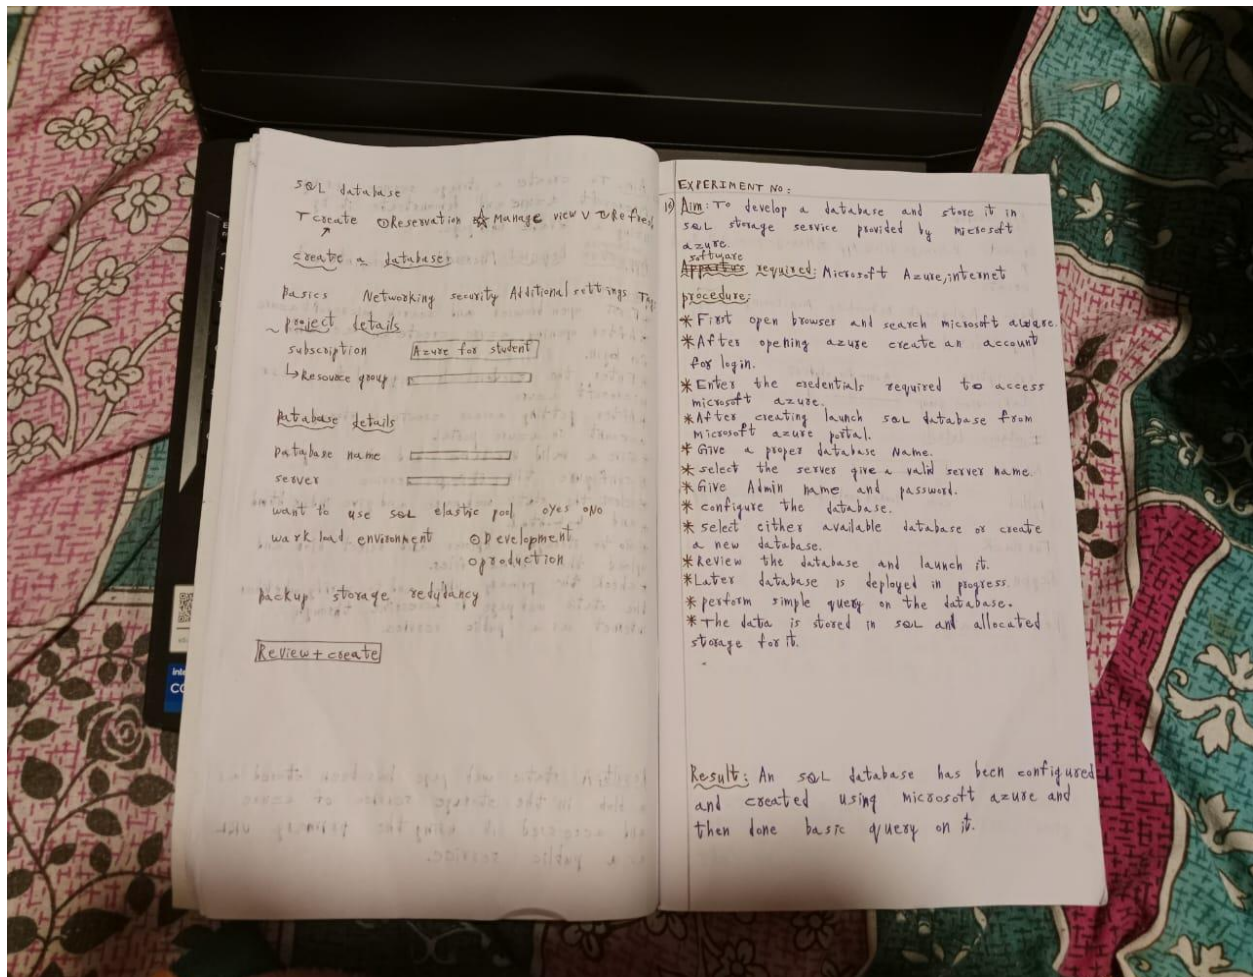 SQL database
create Reservation Manage view V Refresh
create a database:
Basics Networking security Additional settings Tag
project details
subscription Azure for student
Resource group
Database details
Database name
server
want to use SQL elastic pool oyes oNo
work load environment Development
production
Backup storage redydancy
Review + create
EXPERIMENT NO:
19) Aim: To develop a database and store it in
SQL storage service provided by microsoft
azure.
software
Appartus required: Microsoft Azure, internet
procedure:
* First open browser and search microsoft
* After opening azure create an account
for login.
* Enter the credentials required to access
microsoft azure.
* After creating launch SQL database from
microsoft azure portal.
* Give a proper database Name.
* select the server give a valid server name.
* Give Admin name and password.
* configure the database.
* select either available database or create
a new database.
* Review the database and launch it.
* Later database is deployed in progress.
* perform simple query on the database.
* The data is stored in SQL and allocated
storage for it.
Result: An SQL database has been configured
and created using microsoft azure and
then done basic query on it.